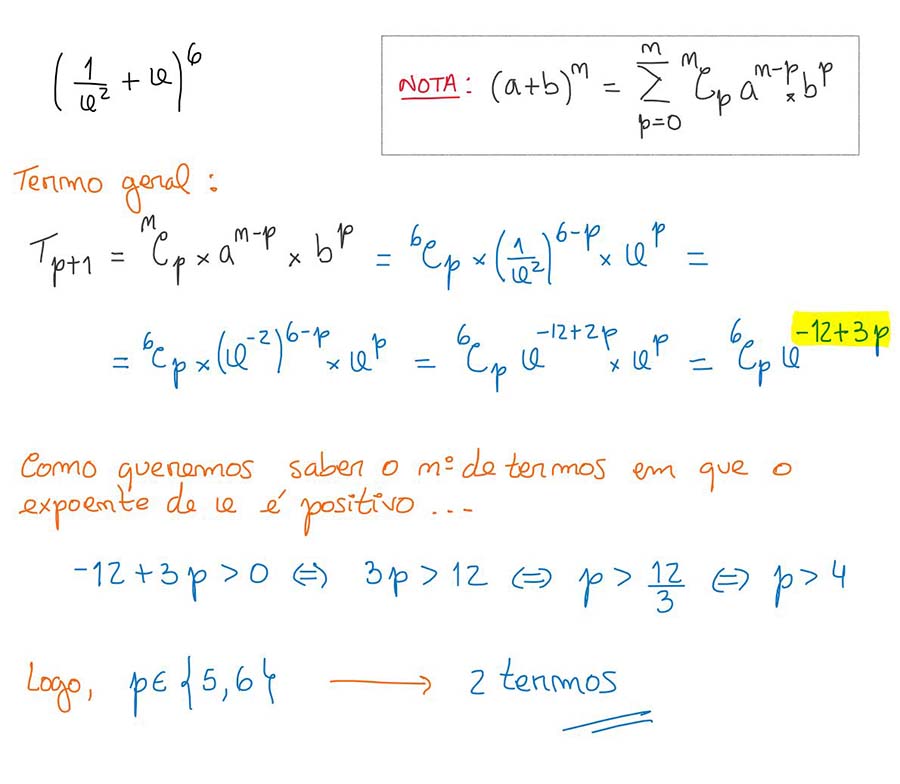 (1/x² + x)⁶
NOTA: (a+b)ⁿ = Σₚ₌₀ⁿ ⁿCₚ aⁿ⁻ᵖ × bᵖ
Termo geral:
Tₚ₊₁ = ⁿCₚ × aⁿ⁻ᵖ × bᵖ = ⁶Cₚ × (1/x²)⁶⁻ᵖ × xᵖ =
= ⁶Cₚ × (x⁻²)⁶⁻ᵖ × xᵖ = ⁶Cₚ x⁻¹²⁺²ᵖ × xᵖ = ⁶Cₚ x⁻¹²⁺³ᵖ
Como queremos saber o nº de termos em que o
expoente de x é positivo ...
-12+3p > 0 ⇔ 3p > 12 ⇔ p > 12/3 ⇔ p > 4
Logo, p∈{5,6} → 2 termos